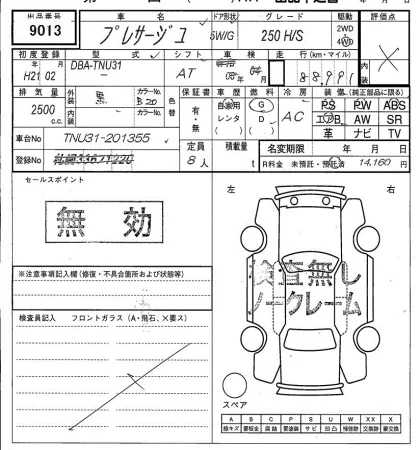 出品番号 車名 ドア形状 グレード 駆動 評価点
9013 プレサージュ 5W/G 250 H/S 2WD 4WD
初度登録 型式 シフト 車検 走行(km・マイル) 内装
年 月 H21 02 DBA-TNU31 AT 年 月 88,991 ×
排気量 外装 黒 カラーNo. B20 色替 保証書 車歴 燃料 冷房 装備(純正部品に限る)
2500 c.c. 内装 カラーNo. 有・無 自家用 レンタ G D AC PS PW ABS
エアB AW SR
革 ナビ TV
車台No TNU31-201355 定員 積載量 名変期限 年 月 日
登録No 8人 t R料金 未預託・預託済 14,160 円
セールスポイント
無効
左 右
※注意事項記入欄(修復・不具合箇所および状態等)
検査無し
ノークレーム
検査員記入 フロントガラス(A・飛石、×要ス)
スペア
A B C P S U W XX X
線キズ 要板金 腐蝕 要塗装 サビ 凹凸 補修跡 交換跡 要交換